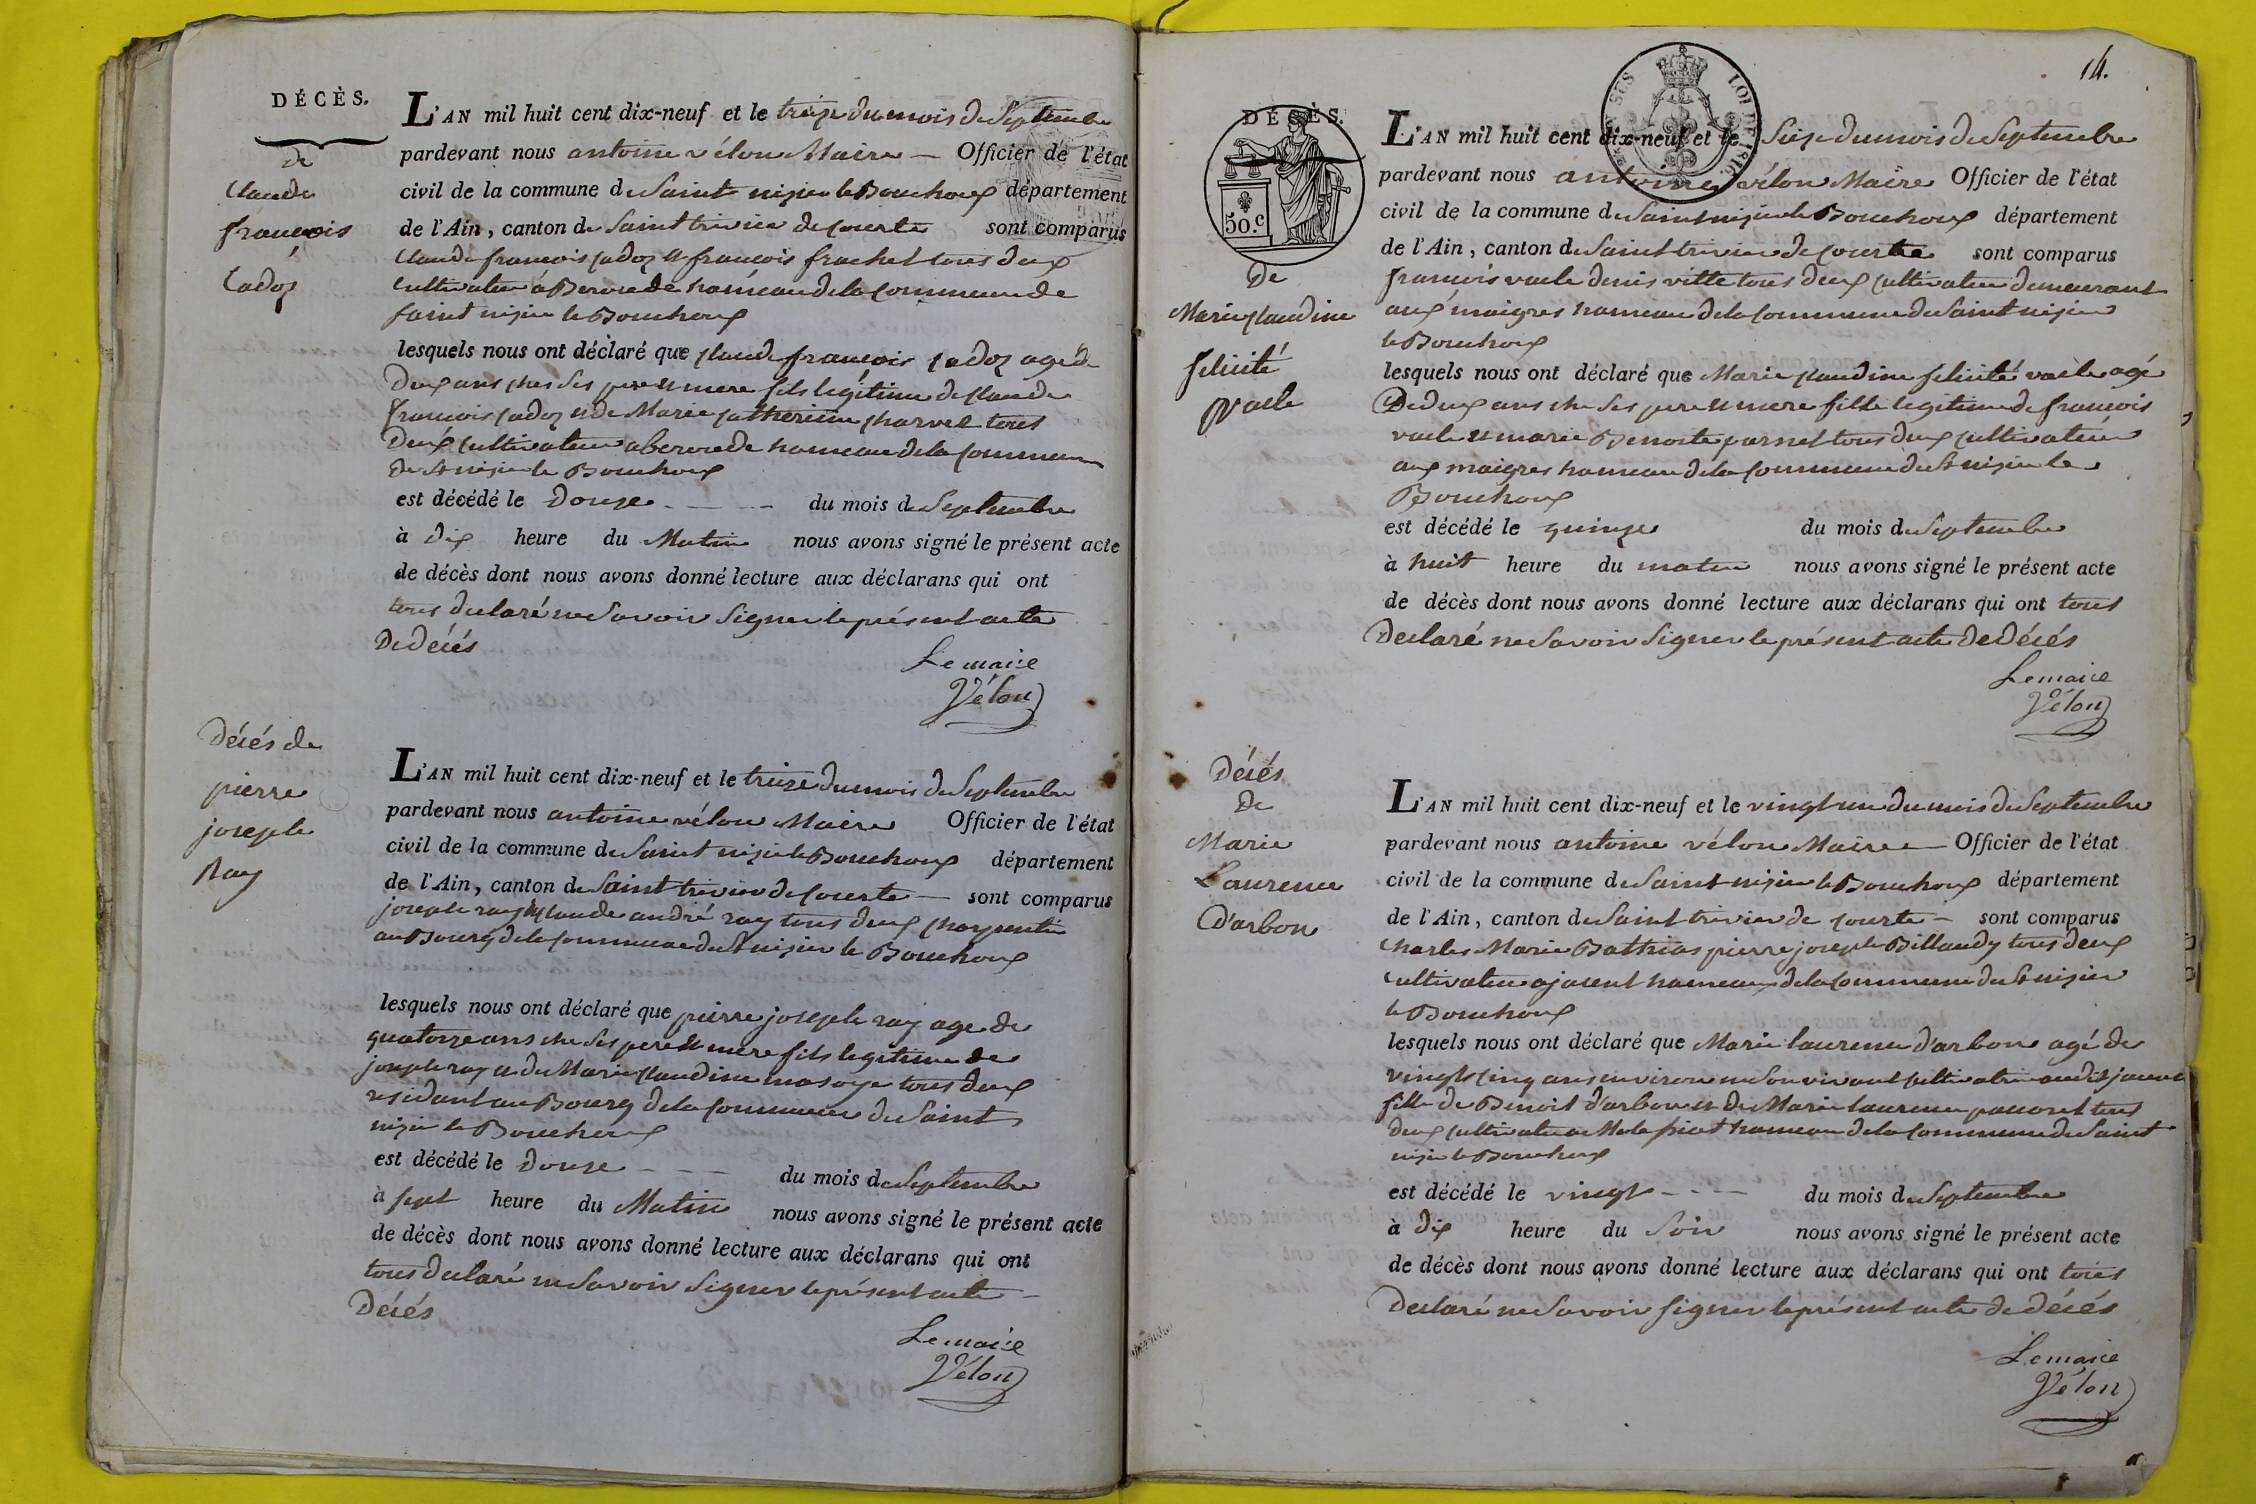 DÉCÈS.
de
Claude
françois
Cadoz
L'AN mil huit cent dix-neuf et le treize du mois de Septembre
pardevant nous antoine vélon Maire — Officier de l'état
civil de la commune de Saint nizier le Bouchoux département
de l'Ain, canton de Saint trivier de Courte sont comparus
Claude françois Cadoz et françois frachet tous deux
cultivateur á hameau de la Commune de
Saint nizier le Bouchoux
lesquels nous ont déclaré que Claude françois Cadoz agé de
Deux ans chés ses pere et mere fils legitime de Claude
françois Cadoz et de Marie Catherine Charvet tous
Deux Cultivateur a hameau de la Commune
De St nizier le Bouchoux
est décédé le Douze du mois de Septembre
à Dix heure du Matin nous avons signé le présent acte
de décès dont nous avons donné lecture aux déclarans qui ont
tous declaré ne Savoir Signer le présent acte
De décés
Le maire
Vélon
Décés de
pierre
joseph
Ray
L'AN mil huit cent dix-neuf et le treize du mois de Septembre
pardevant nous antoine vélon Maire Officier de l'état
civil de la commune de Saint nizier le Bouchoux département
de l'Ain, canton de Saint trivier de Courte — sont comparus
joseph ray et Claude andré ray tous deux Charpentier
au Bourg de la Commune de St nizier le Bouchoux
lesquels nous ont déclaré que pierre joseph ray age de
quatorze ans che ses pere et mere fils legitime de
joseph ray et de Marie Claudine tous deux
residant au Bourg de la Commune de Saint
nizier le Bouchoux
est décédé le Douze du mois de Septembre
à Sept heure du Matin nous avons signé le présent acte
de décès dont nous avons donné lecture aux déclarans qui ont
tous declaré ne Savoir Signer le présent acte
Décés
Le maire
Vélon
14.
DÉCÈS.
50.C
De
Marie Claudine
felicité
vacle
L'AN mil huit cent dix-neuf et le Seize du mois de Septembre
pardevant nous antoine vélon Maire Officier de l'état
civil de la commune de Saint nizier le Bouchoux département
de l'Ain, canton de Saint trivier de Courte sont comparus
françois vacle denis vitte tous deux Cultivateur demeurant
aux maigres hameau de la Commune de Saint nizier
le Bouchoux
lesquels nous ont déclaré que Marie Claudine felicité vacle agé
De deux ans che ses pere et mere fille legitime de françois
vacle et marie Benoite tous deux Cultivateur
aux maigres hameau de la Commune de St nizier le
Bouchoux
est décédé le quinze du mois de Septembre
à huit heure du matin nous avons signé le présent acte
de décès dont nous avons donné lecture aux déclarans qui ont tous
Declaré ne Savoir Signer le présent acte de décés
Le maire
Vélon
Décés
De
Marie
Laurence
D'arbon
L'AN mil huit cent dix-neuf et le vingt une du mois de Septembre
pardevant nous antoine vélon Maire — Officier de l'état
civil de la commune de Saint nizier le Bouchoux département
de l'Ain, canton de Saint trivier de Courte — sont comparus
Charles Marie Bathias pierre joseph Billaudy tous deux
Cultivateur a hameau de la Commune de St nizier
le Bouchoux
lesquels nous ont déclaré que Marie laurence d'arbon agé de
vingt Cinq ans environ en Son vivant Cultivatrice audit
fille de Benoit d'arbon et de Marie laurence tous
deux Cultivateur a hameau de la Commune de Saint
nizier le Bouchoux
est décédé le vingt du mois de Septembre
à Dix heure du Soir nous avons signé le présent acte
de décès dont nous avons donné lecture aux déclarans qui ont tous
Declaré ne Savoir Signer le présent acte de décés
Le maire
Vélon